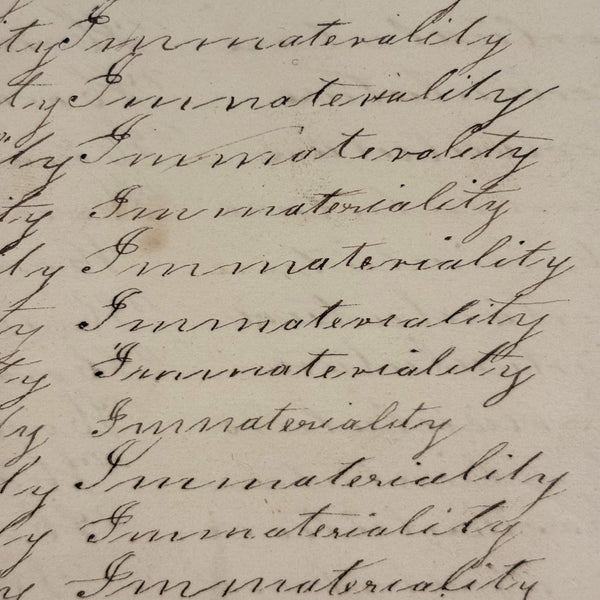 ity Immaterality
ty Immateriality
ity Immaterality
ity Immateriality
ty Immateriality
ty Immateriality
ty Immateriality
ty Immateriality
ty Immateriality
ty Immateriality
y Immateriality